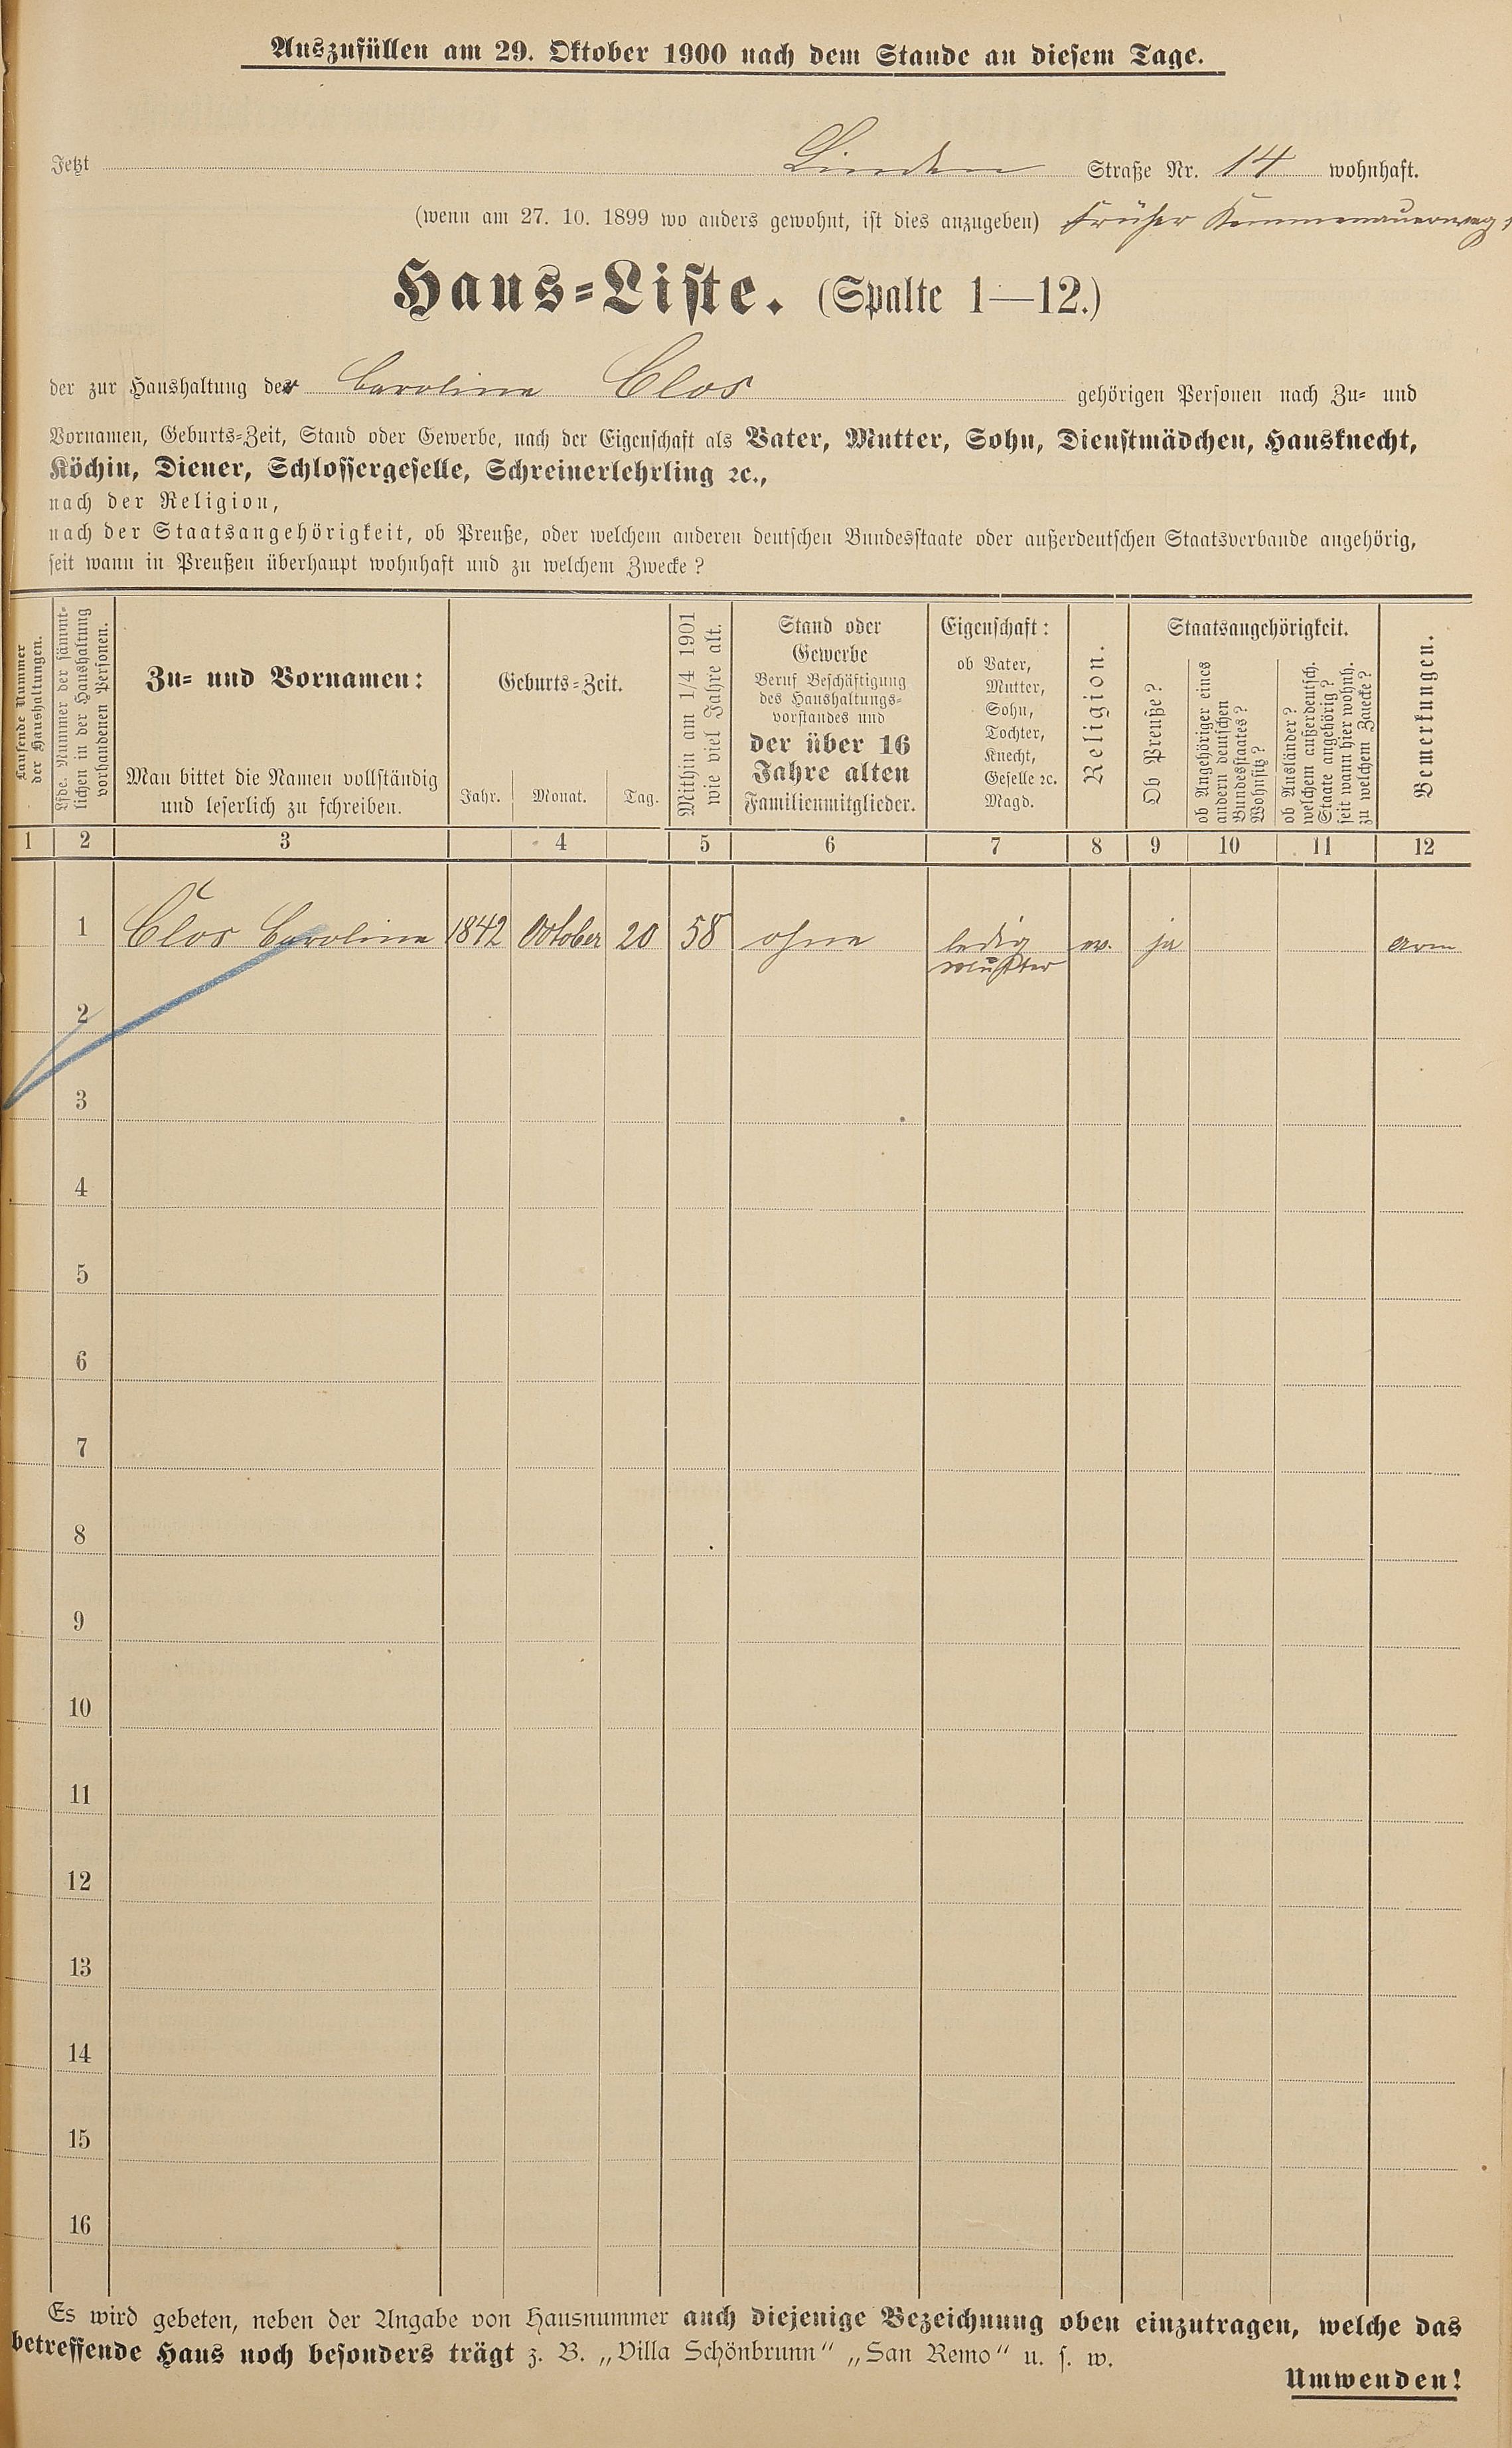 Auszufüllen am 29. Oktober 1900 nach dem Stande an diesem Tage.
Jetzt Linden Straße Nr. 14 wohnhaft.
(wenn am 27. 10. 1899 wo anders gewohnt, ist dies anzugeben) früher
Haus-Liste. (Spalte 1—12.)
der zur Haushaltung der Caroline Clos gehörigen Personen nach Zu- und
Vornamen, Geburts-Zeit, Stand oder Gewerbe, nach der Eigenschaft als Vater, Mutter, Sohn, Dienstmädchen, Hausknecht,
Köchin, Diener, Schlossergeselle, Schreinerlehrling ꝛc.,
nach der Religion,
nach der Staatsangehörigkeit, ob Preuße, oder welchem anderen deutschen Bundesstaate oder außerdeutschen Staatsverbande angehörig,
seit wann in Preußen überhaupt wohnhaft und zu welchem Zwecke?
Laufende Nummer
der Haushaltungen.
Lfde. Nummer der sämmt-
lichen in der Haushaltung
vorhandenen Personen.
Zu- und Vornamen:
Man bittet die Namen vollständig
und leserlich zu schreiben.
Geburts-Zeit.
Jahr. Monat. Tag.
Mithin am 1/4 1901
wie viel Jahre alt.
Stand oder
Gewerbe
Beruf Beschäftigung
des Haushaltungs-
vorstandes und
der über 16
Jahre alten
Familienmitglieder.
Eigenschaft:
ob Vater,
Mutter,
Sohn,
Tochter,
Knecht,
Geselle ꝛc.
Magd.
Religion.
Staatsangehörigkeit.
Ob Preuße?
ob Angehöriger eines
andern deutschen
Bundesstaates?
Wohnsitz?
ob Ausländer?
welchem außerdeutsch.
Staate angehörig?
seit wann hier wohnh.
zu welchem Zwecke?
Bemerkungen.
1 2 3 4 5 6 7 8 9 10 11 12
1 Clos Caroline 1842 October 20 58 ohne ledig ja arm
2
3
4
5
6
7
8
9
10
11
12
13
14
15
16
Es wird gebeten, neben der Angabe von Hausnummer auch diejenige Bezeichnung oben einzutragen, welche das
betreffende Haus noch besonders trägt z. B. „Villa Schönbrunn“ „San Remo“ u. s. w.
Umwenden!